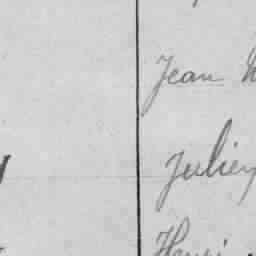 Jean
Julien
Henri